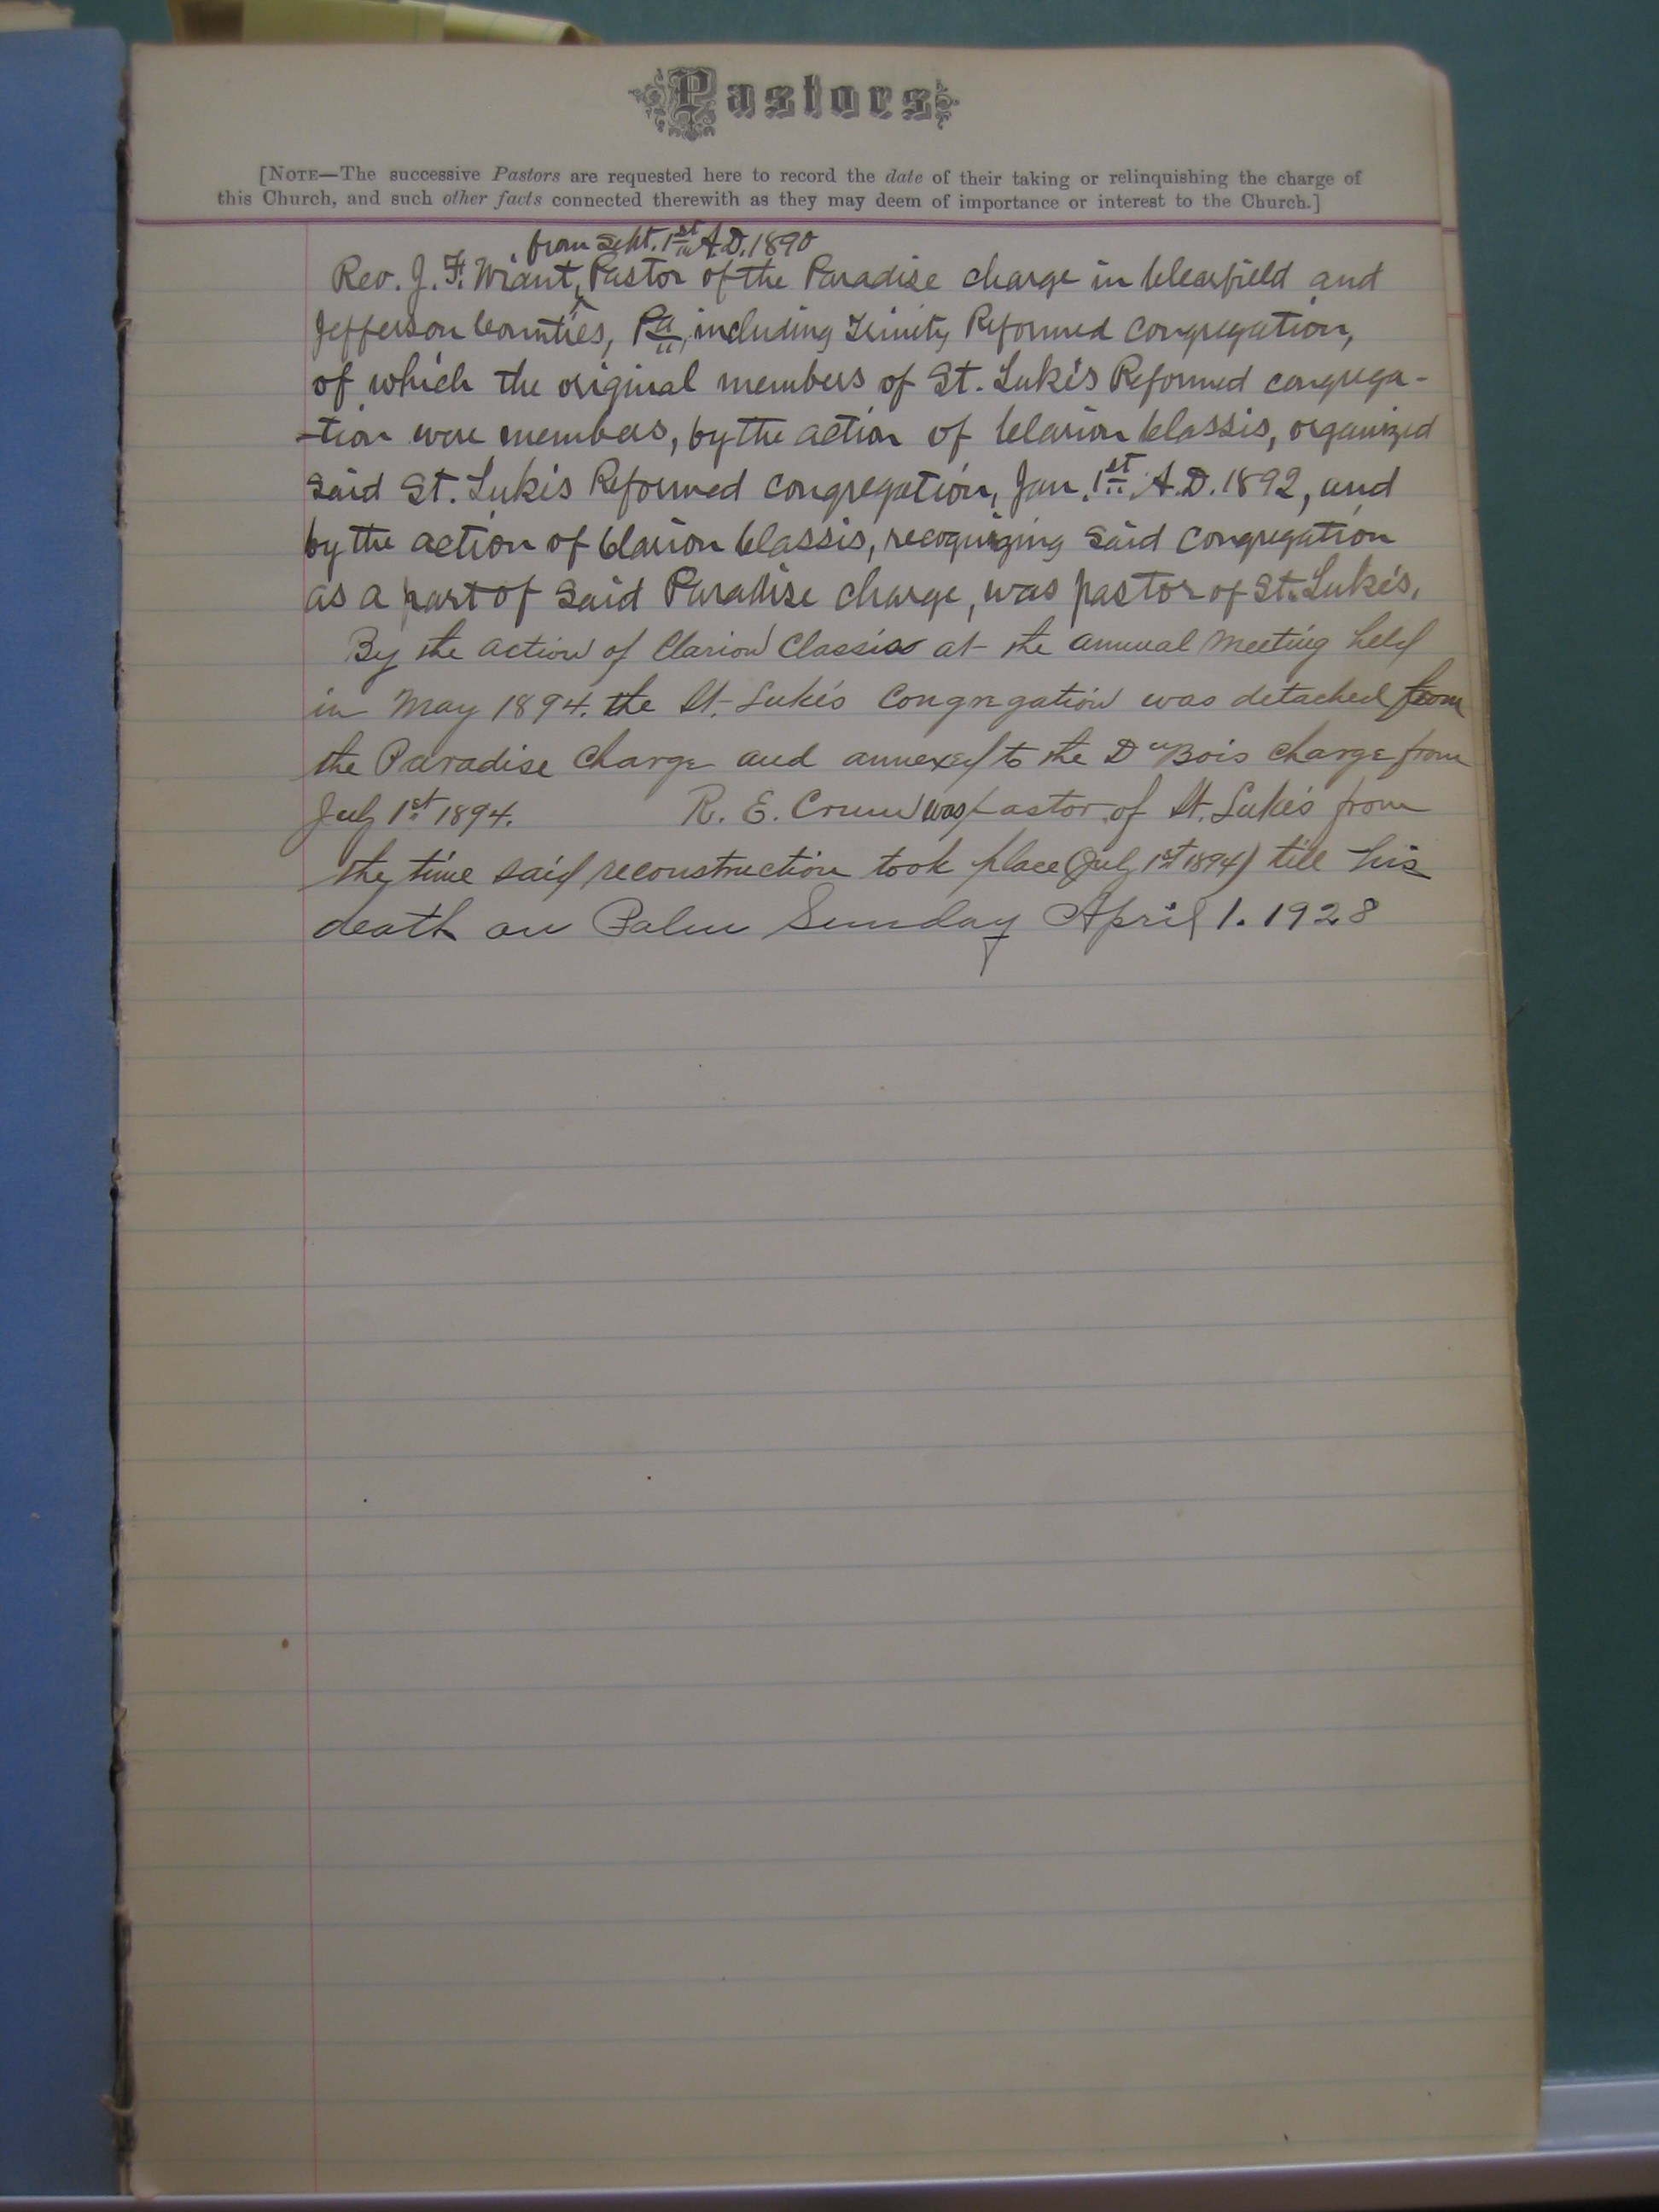 Pastors
[NOTE—The successive Pastors are requested here to record the date of their taking or relinquishing the charge of
this Church, and such other facts connected therewith as they may deem of importance or interest to the Church.]
from Sept. 1st A.D. 1890
Rev. J. F. Wiant, Pastor of the Paradise charge in Clearfield and
Jefferson Counties, Pa, including Trinity Reformed Congregation,
of which the original members of St. Luke's Reformed congrega-
-tion were members, by the action of Clarion Classis, organized
said St. Luke's Reformed Congregation, Jan. 1st A.D. 1892, and
by the action of Clarion Classis, recognizing said Congregation
as a part of said Paradise charge, was pastor of St. Luke's.
By the action of Clarion Classis at the annual meeting held
in May 1894. the St. Luke's Congregation was detached from
the Paradise Charge and annexed to the DuBois charge from
July 1st 1894. R. E. Crum was Pastor of St. Luke's from
the time said reconstruction took place (July 1st 1894) till his
death on Palm Sunday April 1. 1928